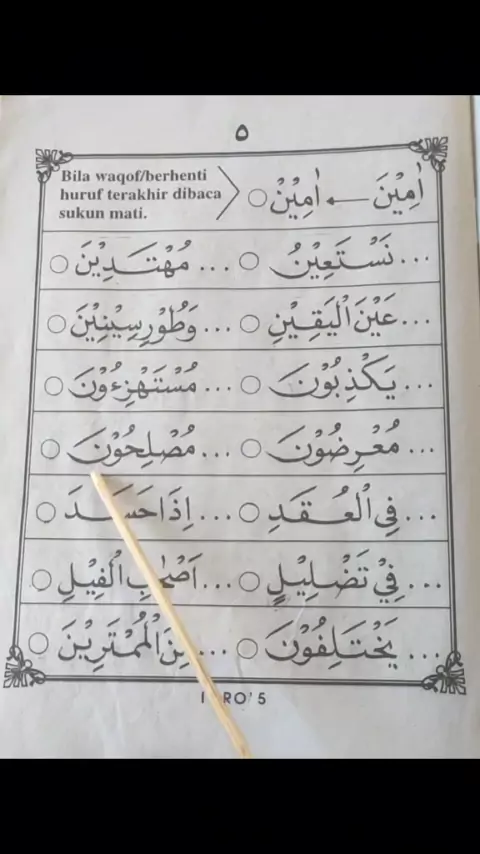 ٥
Bila waqof/berhenti
huruf terakhir dibaca
sukun mati.
اٰمِيْنَ ← اٰمِيْنْ ○
... نَسْتَعِيْنُ ○ ... مُهْتَدِيْنَ ○
... عَيْنَ الْيَقِيْنِ ○ ... وَطُوْرِسِيْنِيْنَ ○
... يَكْذِبُوْنَ ○ ... مُسْتَهْزِءُوْنَ ○
... مُعْرِضُوْنَ ○ ... مُصْلِحُوْنَ ○
... فِى الْعُقَدِ ○ ... اِذَا حَسَدَ ○
... فِيْ تَضْلِيْلٍ ○ ... اَصْحٰبِ الْفِيْلِ ○
... يَخْتَلِفُوْنَ ○ ... الْمُمْتَرِيْنَ ○
RO' 5